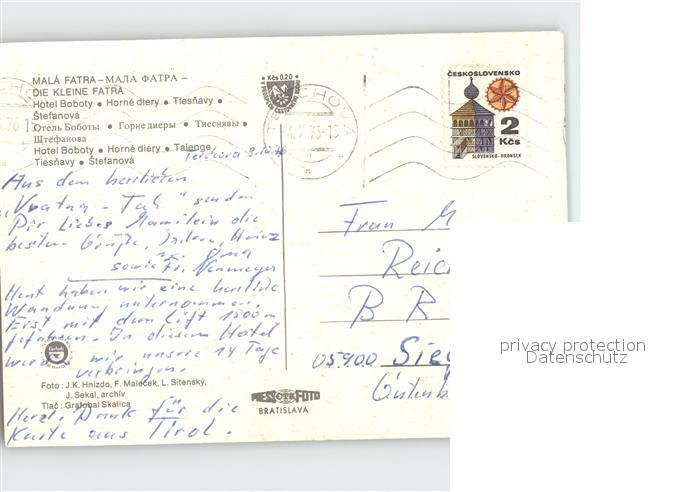 MALÁ FATRA – МАЛА ФАТРА –
DIE KLEINE FATRA
Hotel Boboty • Horné diery • Tiesňavy •
Štefanová
Отель Боботы • Горне диеры • Тиеснявы •
Штефанова
Hotel Boboty • Horné diery • Talenge
Tiesňavy • Štefanová
Kčs 0,20
ČESKOSLOVENSKO
2
Kčs
SLOVENSKO-HRONSEK
Aus dem herrlichen
"Vratna - Tal" senden
Dir liebes Mamilein die
besten Grüße, Heinz
u. Oma
sowie Fr. Neumeyer
Heut haben wir eine herrliche
Wanderung unternommen.
Erst mit dem Lift 1500m
gefahren. In diesem Hotel
werden wir unsere 14 Tage
verbringen.
Foto: J.K. Hnízdo, F. Maleček, L. Sitenský,
J. Sekal, archív
Tlač: Grafobal Skalica
Herzl. Dank für die
Karte aus Tirol.
PRESSFOTO
BRATISLAVA
Frau M
Reic
B R
05900 Sieg
Gutenb
privacy protection
Datenschutz